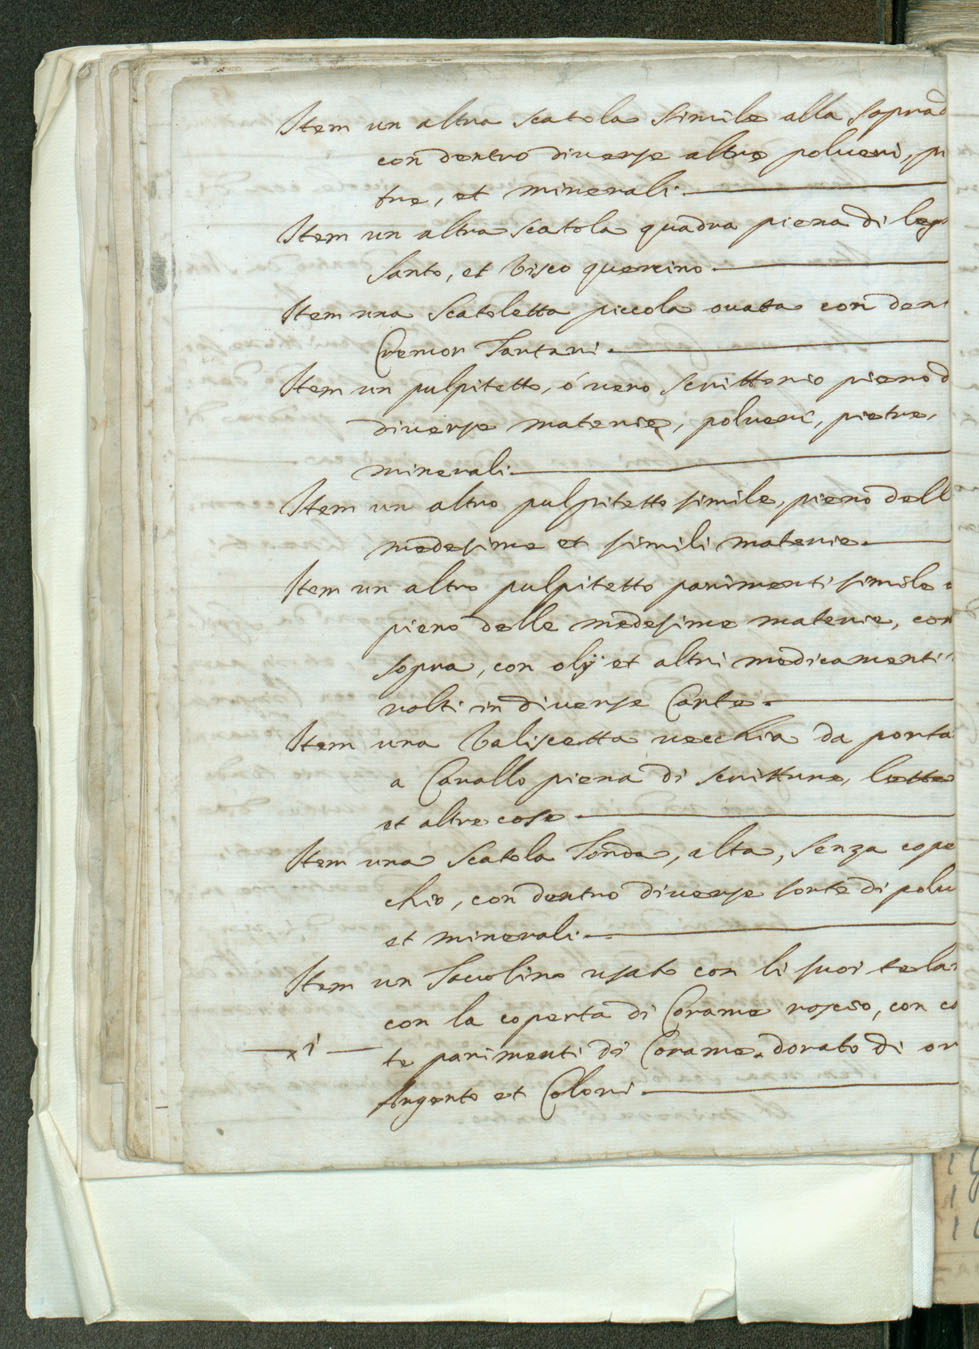 Item un altra scatola simile alla soprad
con dentro diverse altre polveri, pi
tre, et minerali.
Item un altra scatola quadra piena di leg
santo, et visco quercino.
Item una scatoletta piccola ovata con den
Cremor Tartari.
Item un pulpitetto, ó vero scrittorio pieno d
diverse materie, polveri, pietre,
minerali.
Item un altro pulpitetto simile, pieno dell
medesime et simili materie.
Item un altro pulpitetto parimenti simile
pieno delle medesime materie, com
sopra, con olij et altri medicamenti
volti in diverse Carte.
Item una valiscetta vecchia da porta
a Cavallo piena di scritture, lette
et altre cose
Item una scatola Tonda, alta, senza cope
chio, con dentro diverse sorte di polv
et minerali.
Item un Tavolino usato con li suoi tela
con la coperta di Corame rosso, con co
te parimenti di Corame dorato di or
Argento et Colori.